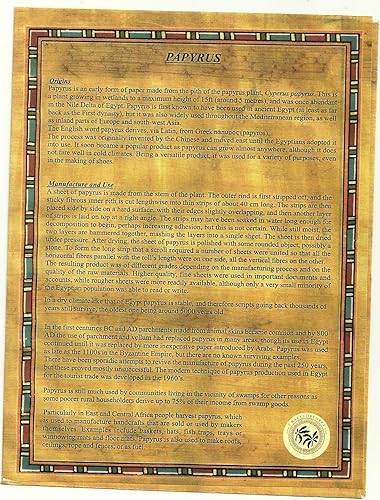 PAPYRUS
Origins
Papyrus is an early form of paper made from the pith of the papyrus plant, Cyperus papyrus. This is
a plant growing in wetlands to a maximum height of 15ft (around 5 metres), and was once abundant
in the Nile Delta of Egypt. Papyrus is first known to have been used in ancient Egypt (at least as far
back as the First dynasty), but it was also widely used throughout the Mediterranean region, as well
as inland parts of Europe and south-west Asia.
The English word papyrus derives, via Latin, from Greek πάπυρος (papyros).
The process was originally invented by the Chinese and moved east until the Egyptians adopted it
into use. It soon became a popular product as papyrus can grow almost anywhere, although it does
not fare well in cold climates. Being a versatile product, it was used for a variety of purposes, even
in the making of shoes.
Manufacture and Use
A sheet of papyrus is made from the stem of the plant. The outer rind is first stripped off, and the
sticky fibrous inner pith is cut lengthwise into thin strips of about 40 cm long. The strips are then
placed side by side on a hard surface, with their edges slightly overlapping, and then another layer
of strips is laid on top at a right angle. The strips may have been soaked in water long enough for
decomposition to begin, perhaps increasing adhesion, but this is not certain. While still moist, the
two layers are hammered together, mashing the layers into a single sheet. The sheet is then dried
under pressure. After drying, the sheet of papyrus is polished with some rounded object, possibly a
stone. To form the long strip that a scroll required a number of sheets were united so that all the
horizontal fibres parallel with the roll's length were on one side, all the vertical fibres on the other.
The resulting product was of different grades depending on the manufacturing process and on the
quality of the raw materials. Higher quality, fine sheets were used in important documents and
accounts, while tougher sheets were more readily available, although only a very small minority of
the Egyptian population was able to read or write.
In a dry climate like that of Egypt papyrus is stable, and therefore scripts going back thousands of
years still survive, the oldest one being around 5000 years old.
In the first centuries BC and AD parchments made from animal skins became common and by 800
AD the use of parchment and vellum had replaced papyrus in many areas, though its use in Egypt
continued until it was replaced by more inexpensive paper introduced by Arabs. Papyrus was used
as late as the 1100s in the Byzantine Empire, but there are no known surviving examples.
There have been sporadic attempts to revive the manufacture of papyrus during the past 250 years,
but these proved mostly unsuccessful. The modern technique of papyrus production used in Egypt
for the tourist trade was developed in the 1960's.
Papyrus is still much used by communities living in the vicinity of swamps for other reasons as
some poorer rural householders derive up to 75% of their income from swamp goods.
Particularly in East and Central Africa people harvest papyrus, which
is used to manufacture handicrafts that are sold or used by makers
themselves. Examples include baskets, hats, fish traps, trays or
winnowing mats and floor mats. Papyrus is also used to make roofs,
ceilings, rope and fences, or as fuel.